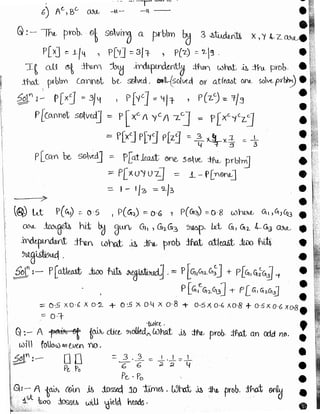 6) Aᶜ, Bᶜ are –||– –||–
Q:- The prob. of solving a prblm by 3 students X, Y & Z are
P[X] = 1/4 , P[Y] = 3/7 , P(Z) = 2/9.
If all of them try independently then what is the prob.
that prblm cannot be solved. (solved or atleast one solve prblm)
Solⁿ:- P[Xᶜ] = 3/4 , P[Yᶜ] = 4/7 , P(Zᶜ) = 7/9
P[cannot solved] = P[Xᶜ ∩ Yᶜ ∩ Zᶜ] = P[XᶜYᶜZᶜ]
= P[Xᶜ] P[Yᶜ] P[Zᶜ] = 3/4 × 4/7 × 7/9 = 1/3
P[can be solved] = P[at least one solve the prblm]
= P[X∪Y∪Z] = 1 - P[none]
= 1 - 1/3 = 2/3
Q) Let P(G₁) = 0.5 , P(G₂) = 0.6 , P(G₃) = 0.8 where G₁, G₂, G₃
are targets hit by gun G₁, G₂, G₃ resp. let G₁, G₂ & G₃ are
independent then what is the prob that atleast two hits
registered.
Solⁿ:- P[atleast two hits registered] = P[G₁G₂G₃ᶜ] + P[G₁G₂ᶜG₃] +
P[G₁ᶜG₂G₃] + P[G₁G₂G₃]
= 0.5 × 0.6 × 0.2 + 0.5 × 0.4 × 0.8 + 0.5 × 0.6 × 0.8 + 0.5 × 0.6 × 0.8
= 0.7
Q:- A fair dice rolled twice. What is the prob that an odd no.
will follow even no.
Solⁿ:- = 3/6 · 3/6 = 1/2 · 1/2 = 1/4
PE PO PE · PO
Q:- A fair coin is tossed 10 times. What is the prob. that only
1st two tosses will yield heads.